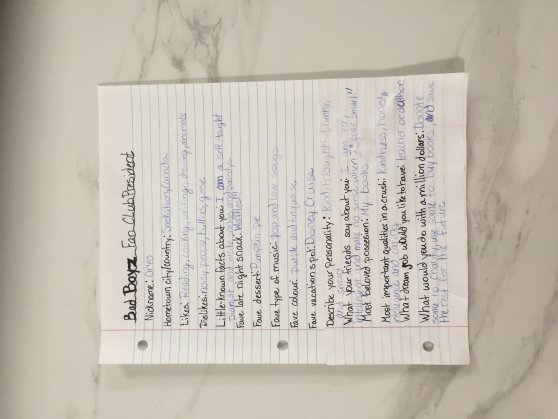 Bad Boyz Fan Club President
Nickname: anno
Hometown city/country: Saskatoon, Canada
Likes: Reading, cooking, writing, drawing, animals
Dislikes: nosy people, bullies, gore
Little known facts about you: I am a self-taught
Fave late night snack: Waffles!!!
Fave dessert: Pumpkin pie
Fave type of music: Pop and love songs
Fave colour: Purple and turquoise
Fave vacation spot: Disney Cruise
Describe your personality: Kind, thoughtful, funny,
What your friends say about you: I am
intelligent and make no sense when I speak smart"
Most beloved possession: My books
Most important qualities in a crush: Kindness, honest,
What dream job would you like to have: teacher or author
What would you do with a million dollars: Donate
some to charity, use some to buy books, and save
the rest for the future